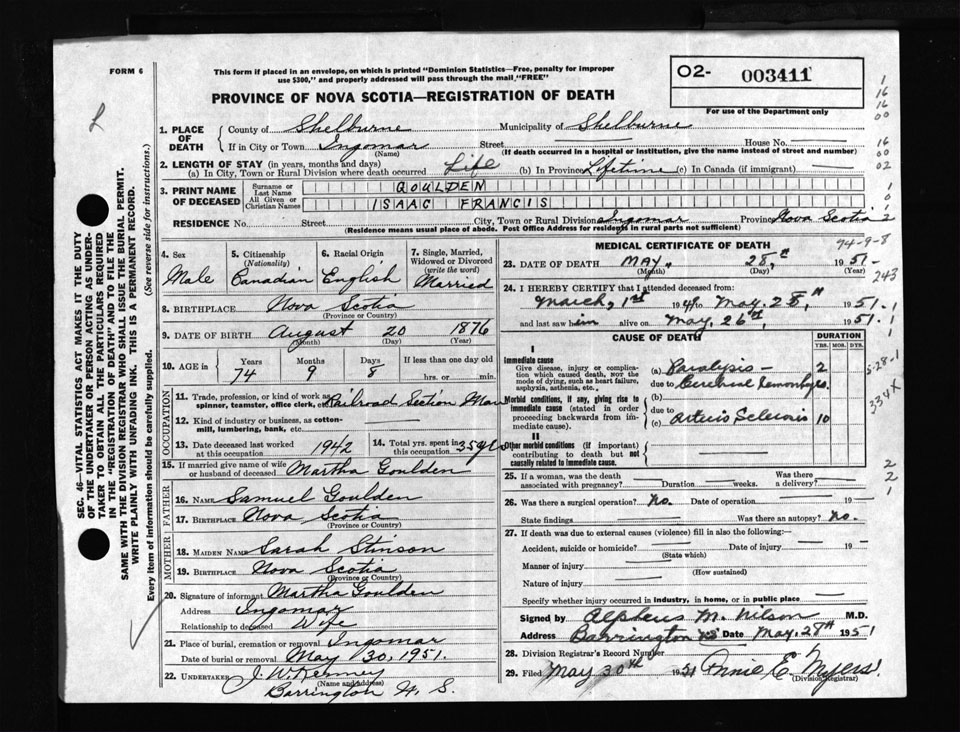 FORM 6
This form if placed in an envelope, on which is printed "Dominion Statistics—Free, penalty for improper
use $300," and properly addressed will pass through the mail "FREE"
PROVINCE OF NOVA SCOTIA—REGISTRATION OF DEATH
O2- 003411
For use of the Department only
1. PLACE OF DEATH
County of Shelburne Municipality of Shelburne
If in City or Town Ingomar Street House No.
(Name) (If death occurred in a hospital or institution, give the name instead of street and number)
2. LENGTH OF STAY (in years, months and days)
(a) In City, Town or Rural Division where death occurred Life (b) In Province Lifetime (c) In Canada (if immigrant)
3. PRINT NAME OF DECEASED
Surname or Last Name GOULDEN
All Given or Christian Names ISAAC FRANCIS
RESIDENCE No. Street City, Town or Rural Division Ingomar Province Nova Scotia
(Residence means usual place of abode. Post Office Address for residents in rural parts not sufficient)
4. Sex Male
5. Citizenship (Nationality) Canadian
6. Racial Origin English
7. Single, Married, Widowed or Divorced (write the word) Married
8. BIRTHPLACE Nova Scotia
(Province or Country)
9. DATE OF BIRTH August 20 1876
(Month) (Day) (Year)
10. AGE in Years 74 Months 9 Days 8 If less than one day old hrs. or min.
OCCUPATION
11. Trade, profession, or kind of work as spinner, teamster, office clerk, etc. Railroad Section Man
12. Kind of industry or business, as cotton-mill, lumbering, bank, etc.
13. Date deceased last worked at this occupation 1942
14. Total yrs. spent in this occupation 35 yrs
15. If married give name of wife or husband of deceased Martha Goulden
FATHER
16. NAME Samuel Goulden
17. BIRTHPLACE Nova Scotia
(Province or Country)
MOTHER
18. MAIDEN NAME Sarah Stinson
19. BIRTHPLACE Nova Scotia
(Province or Country)
20. Signature of informant Martha Goulden
Address Ingomar
Relationship to deceased Wife
21. Place of burial, cremation or removal Ingomar
Date of burial or removal May 30, 1951.
22. UNDERTAKER J. W. Kenney
(Name and Address)
Barrington N. S.
MEDICAL CERTIFICATE OF DEATH
23. DATE OF DEATH MAY, 28,th 1951-
(Month) (Day) (Year)
24. I HEREBY CERTIFY that I attended deceased from:
March, 1st 1949 to May. 28,th 1951.
and last saw him alive on May, 26th, 1951.
CAUSE OF DEATH
DURATION
YRS. MOS. DYS.
I
Immediate cause
Give disease, injury or complication which caused death, NOT the mode of dying, such as heart failure, asphyxia, asthenia, etc.
(a) Paralysis— 2
due to Cerebral Hemorrhage
Morbid conditions, if any, giving rise to immediate cause (stated in order proceeding backwards from immediate cause).
(b)
due to
(c) Arterio Sclerosis 10
II
Other morbid conditions (if important) contributing to death but not causally related to immediate cause.
25. If a woman, was the death associated with pregnancy? Duration weeks. Was there a delivery?
26. Was there a surgical operation? No. Date of operation 19
State findings Was there an autopsy? No.
27. If death was due to external causes (violence) fill in also the following:
Accident, suicide or homicide? Date of injury 19
(State which)
Manner of injury
(How sustained)
Nature of injury
Specify whether injury occurred in industry, in home, or in public place
Signed by Alpheus M. Wilson M.D.
Address Barrington NS Date May. 28th 1951
28. Division Registrar's Record Number
29. Filed May 30th 1951 Annie E. Myers
(Division Registrar)
SEC. 46—VITAL STATISTICS ACT MAKES IT THE DUTY
OF THE UNDERTAKER OR PERSON ACTING AS UNDER-
TAKER TO OBTAIN ALL THE PARTICULARS REQUIRED
IN THE "REGISTRATION OF DEATH" AND TO FILE THE
SAME WITH THE DIVISION REGISTRAR WHO SHALL ISSUE THE BURIAL PERMIT.
WRITE PLAINLY WITH UNFADING INK. THIS IS A PERMANENT RECORD.
Every item of information should be carefully supplied. (See reverse side for instructions.)
1
16
16
00
16
00
02
1
0
1
2
74-9-8
243
5-28-1
334X
2
2
1